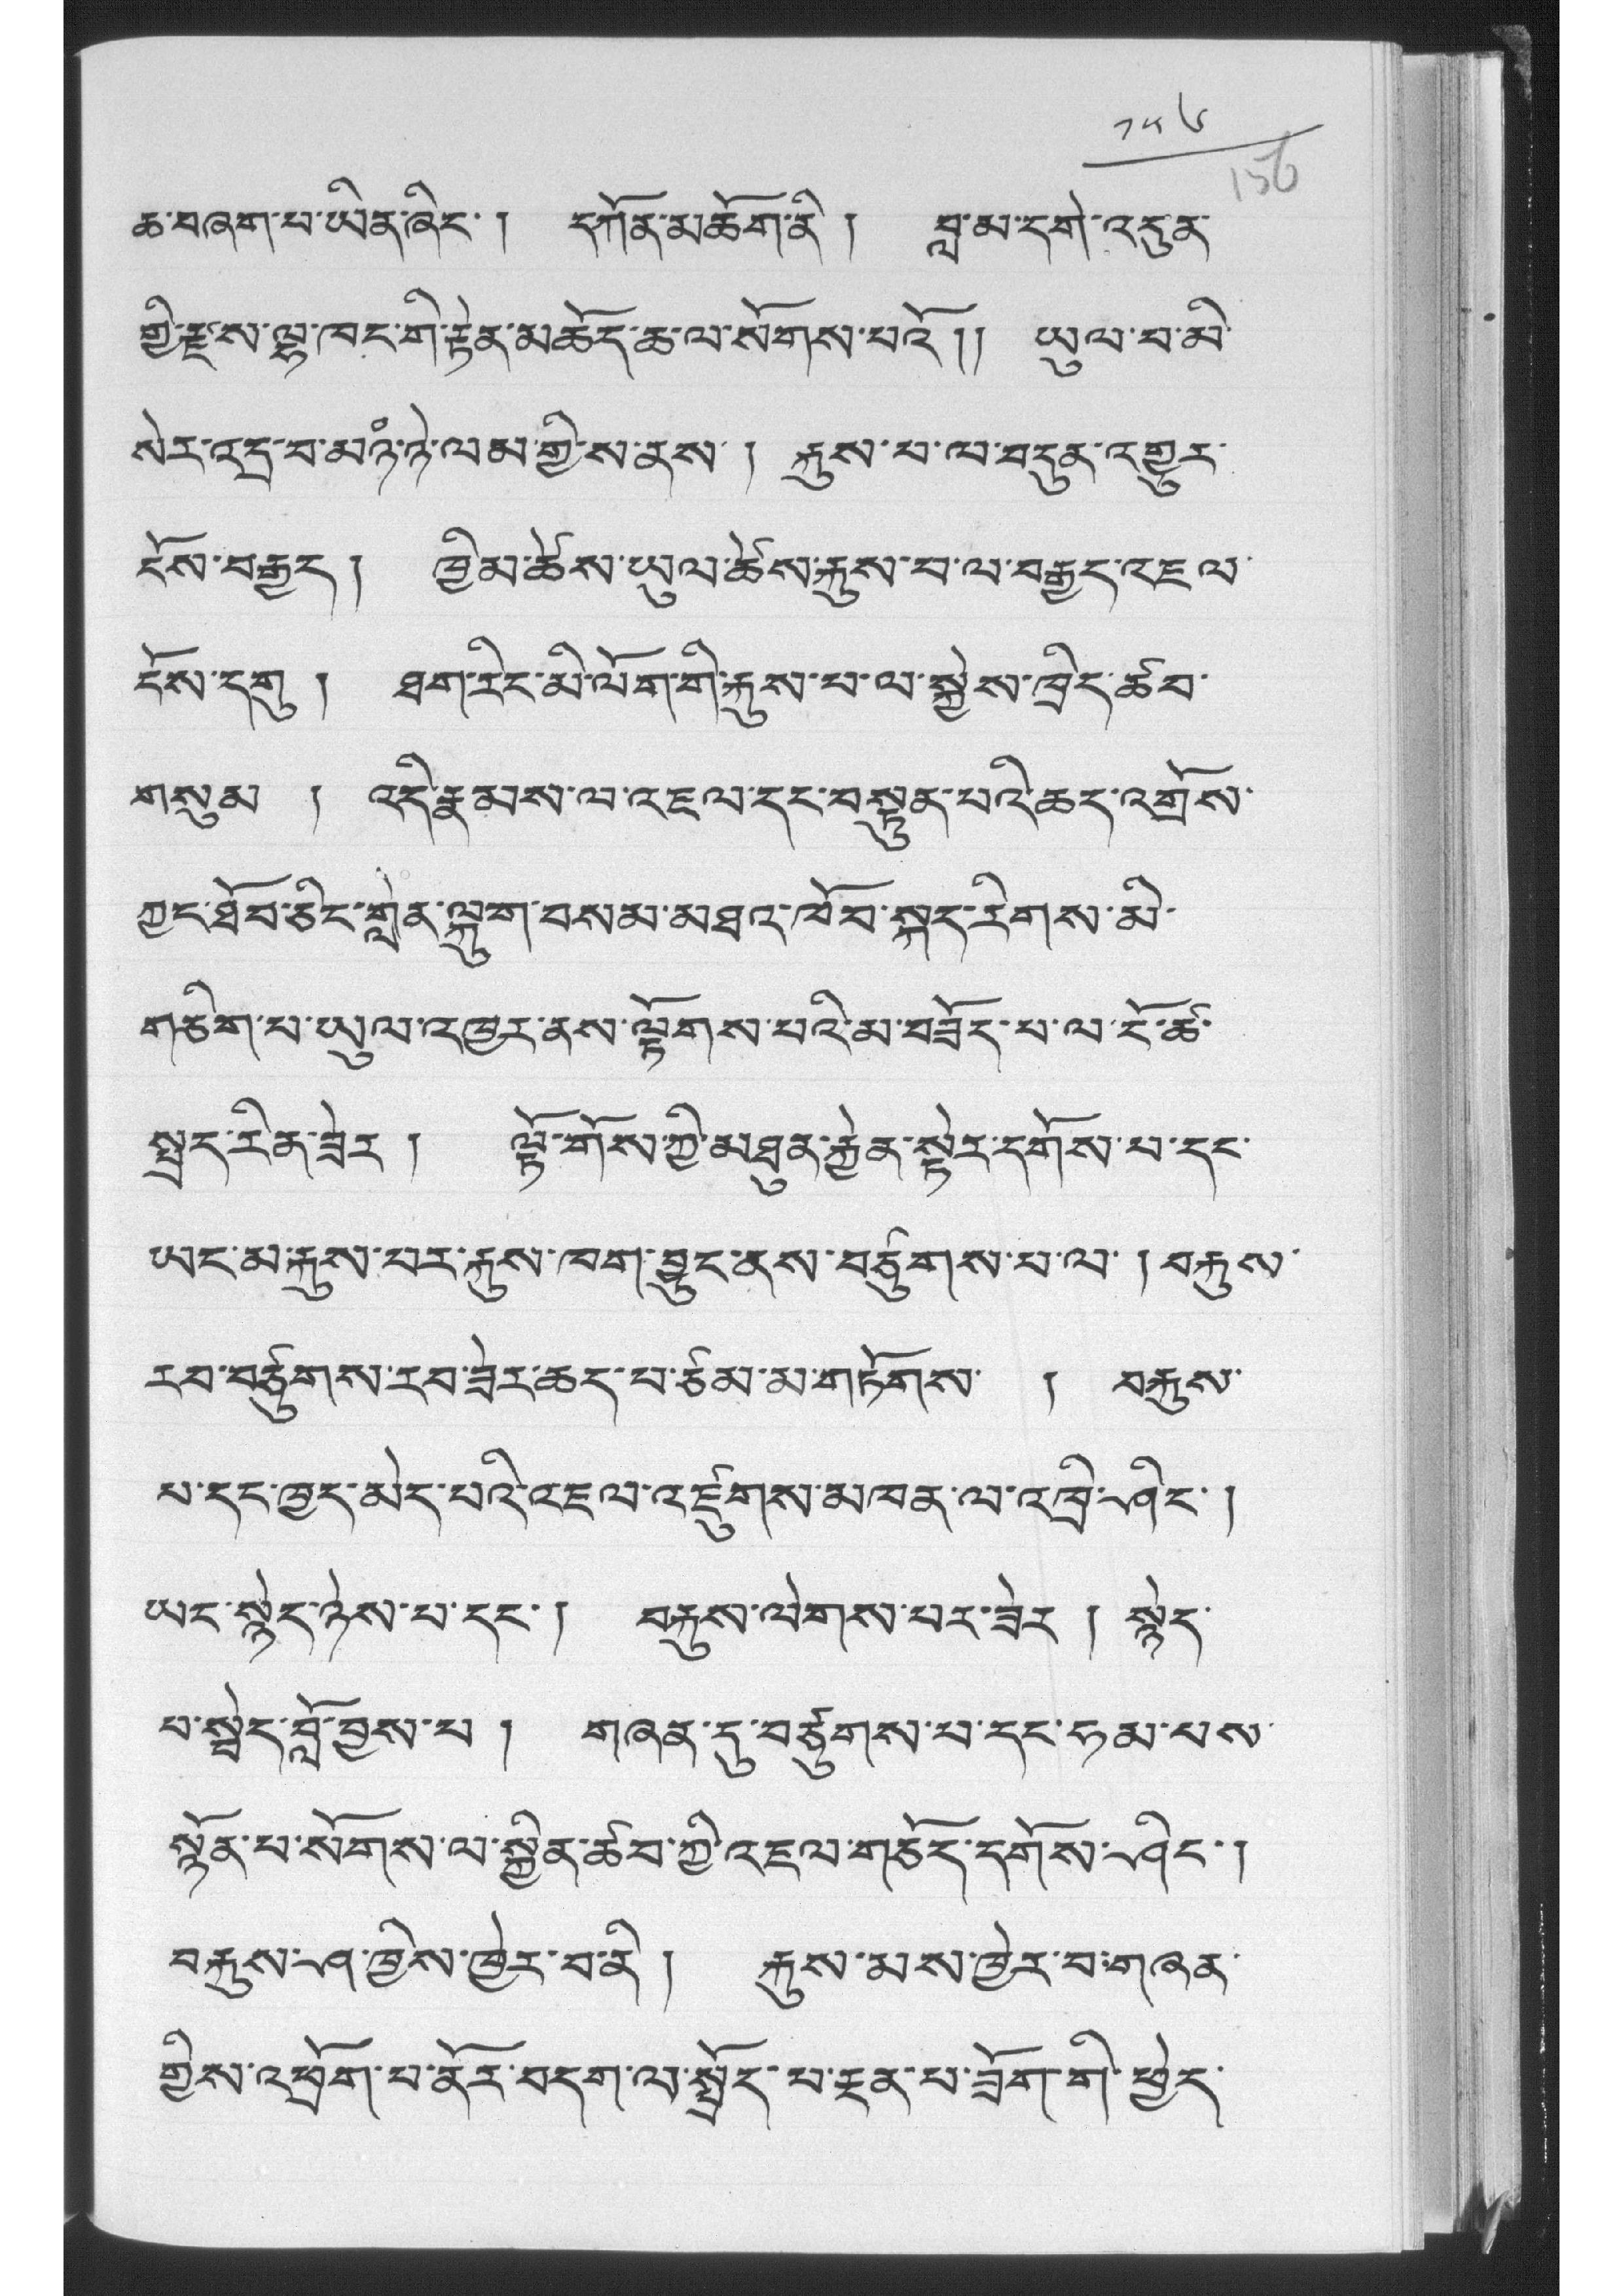 ༡༥༦
156
ཆ་བཞག་པ་ཡིན་ཞིང་། དཀོན་མཆོག་ནི། བླ་མ་དགེ་འདུན་
གྱི་རྫས་ལྷ་ཁང་གི་རྟེན་མཆོད་ཆ་ལ་སོགས་པའོ།། ཡུལ་པ་མི་
སེར་འདྲ་བ་མཉྫེ་ཉེ་ལམ་གྱི་ས་ནས། རྐུས་པ་ལ་བདུན་འགྱུར་
ངོས་བརྒྱད། ཁྱིམ་ཚེས་ཡུལ་ཚེས་རྐུས་པ་ལ་བརྒྱད་འཇལ་
ངོས་དགུ། ཐག་རིང་མི་ལོག་གི་རྐུས་པ་ལ་སྐྱེས་ཁྲིད་ཚབ་
གསུམ ། འདི་རྣམས་ལ་འཇལ་དང་བསྟུན་པའི་ཆད་འགྲོས་
ཀྱང་ཐོབ་ཅིང་གླེན་ལྐུག་བསམ་མཐའ་ཁོབ་སྐད་རིགས་མི་
གཅིག་པ་ཡུལ་འཁྱར་ནས་ལྟོགས་པའི་མ་བཟོད་པ་ལ་ངོ་ཚ་
སྤྲད་རིན་ཟེར། ལྟོ་གོས་ཀྱི་མཐུན་རྐྱེན་སྟེར་དགོས་པ་དང་
ཡང་མ་རྐུས་པར་རྐུས་ཁག་བྱུང་ནས་བཙུགས་པ་ལ་ །བརྐུས་
རབ་བཙུགས་རབ་ཟེར་ཆད་པ་ཙམ་མ་གཏོགས ། བརྐུས་
པ་དང་ཁྱད་མེད་པའི་འཇལ་འཛུགས་མཁན་ལ་འཁྲི་ཞིང་།
ཡང་སྟེད་ཉེས་པ་དང་། བརྐུས་ལེགས་པར་ཟེར། སྟེད་
པ་སྦེད་བློ་བྱས་པ། གཞན་དུ་བཙུགས་པ་དང་ཧམ་པས་
སྙོན་པ་སོགས་ལ་སྐྱིན་ཚབ་ཀྱི་འཇལ་གཅོད་དགོས་ཤིང་།
བརྐུས་ཤ་ཁྱིས་ཁྱེར་བ་ནི། རྐུས་མས་ཁྱེར་བ་གཞན་
གྱིས་འཕྲོག་པ་ནོར་བདག་ལ་སྤྲོད་པ་རྔན་པ་ཟོག་གི་ཕྱེད་